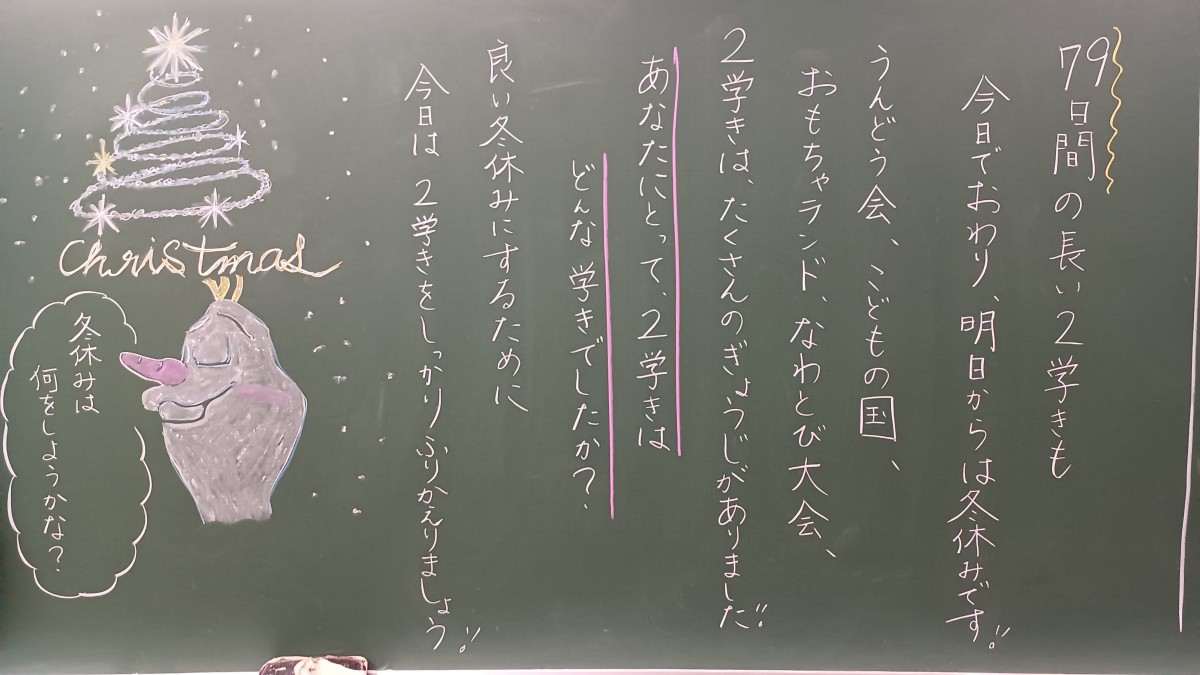 79日間の長い2学きも
今日でおわり、明日からは冬休みです!!
うんどう会、こどもの国、
おもちゃランド、なわとび大会、
2学きは、たくさんのぎょうじがありました!!
あなたにとって、2学きは
どんな学きでしたか?
良い冬休みにするために
今日は2学きをしっかりふりかえりましょう!!
christmas
冬休みは
何をしようかな?